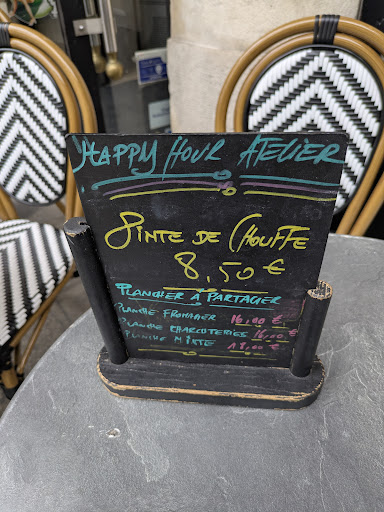 HAPPY HOUR ATELIER
PINTE DE CHOUFFE
8,50 €
PLANCHER À PARTAGER
PLANCHE FROMAGER 16,00 €
PLANCHE CHARCUTERIES 16,00 €
PLANCHE MIXTE 18,00 €